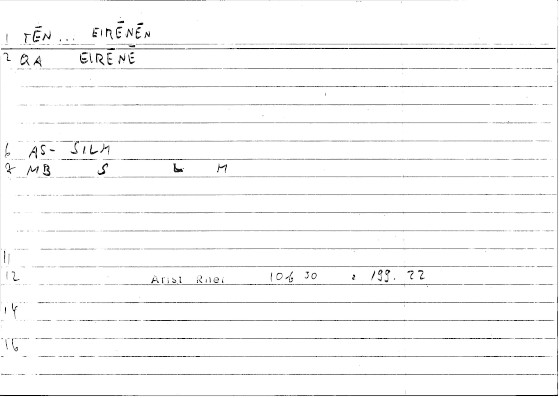 1 TĒN ... EIRĒNĒN
2 QA EIRĒNĒ
6 AS- SILM
7 MB S L M
11
12 Arist Rhet 10630 : 199. 22
14
16